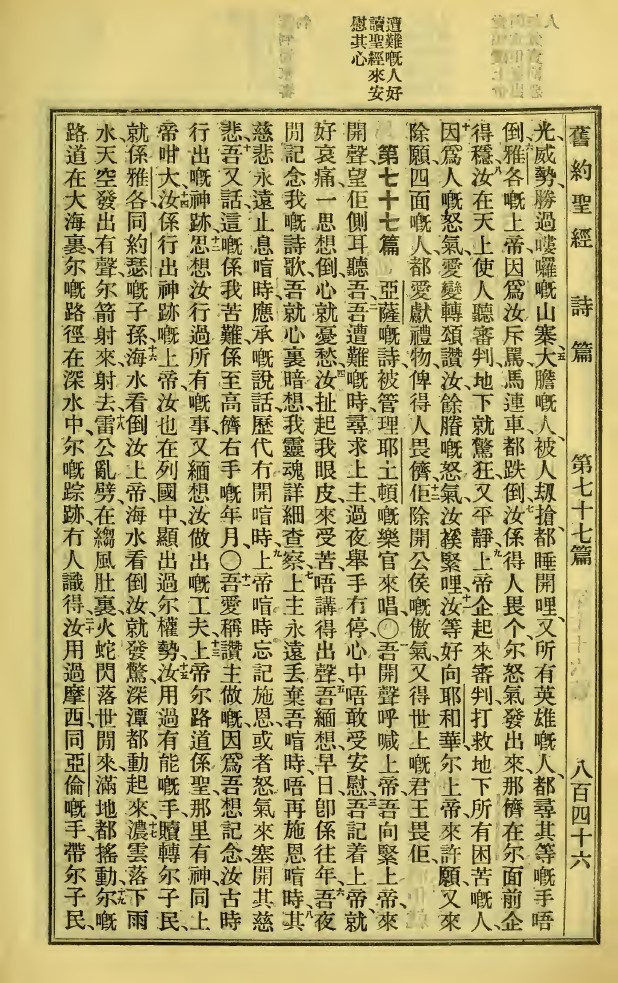 遭難嘅人好
讀聖經來安
慰其心
舊約聖經　詩篇　第七十七篇　八百四十六
光威勢勝過嘍囉嘅山寨、五大膽嘅人被人刼搶、都睡開哩、又所有英雄嘅人、都尋其等嘅手唔
倒、六雅各嘅上帝、因爲汝斥罵、馬連車都跌倒、七汝係得人畏个、尔怒氣發出來、那儕在尔面前企
得穩、八汝在天上使人聽審判、地下就驚狂又平靜、九上帝企起來審判、打救地下所有困苦嘅人、
十因爲人嘅怒氣愛變轉頌讚汝、餘賸嘅怒氣汝𢹂緊哩、十一汝等好向耶和華尔上帝來許願、又來
除願、四面嘅人都愛獻禮物俾得人畏儕佢、十二除開公侯嘅傲氣、又得世上嘅君王畏佢、
第七十七篇　亞薩嘅詩被管理耶土頓嘅樂官來唱〇一吾開聲呼喊上帝、吾向緊上帝來
開聲、望佢側耳聽吾、二吾遭難嘅時尋求上主、過夜舉手冇停、心中唔敢受安慰、三吾記着上帝、就
好哀痛、一思想倒心就憂愁、四汝扯起我眼皮來、受苦唔講得出聲、五吾緬想早日卽係往年、六吾夜
間記念我嘅詩歌、吾就心裏暗想、我靈魂詳細查察、七上主永遠丟棄吾喑時、唔再施恩喑時、八其
慈悲永遠止息喑時、應承嘅說話歷代冇開喑時、九上帝喑時忘記施恩、或者怒氣來塞開其慈
悲、十吾又話、這嘅係我苦難、係至高儕右手嘅年月〇十一吾愛稱讚主做嘅、因爲吾想記念汝古時
行出嘅神跡、十二思想汝行過所有嘅事、又緬想汝做出嘅工夫、十三上帝尔路道係聖、那里有神同上
帝咁大、十四汝係行出神跡嘅上帝、汝也在列國中顯出過尔權勢、十五汝用過有能嘅手、贖轉尔子民、
就係雅各同約瑟嘅子孫、十六海水看倒汝上帝、海水看倒汝就發驚、深潭都動起來、十七濃雲落下雨
水、天空發出有聲、尔箭射來射去、十八雷公亂劈在縐風肚裏、火蛇閃落世間來、滿地都搖動、十九尔嘅
路道在大海裏、尔嘅路徑在深水中、尔嘅踪跡冇人識得、二十汝用過摩西同亞倫嘅手帶尔子民、